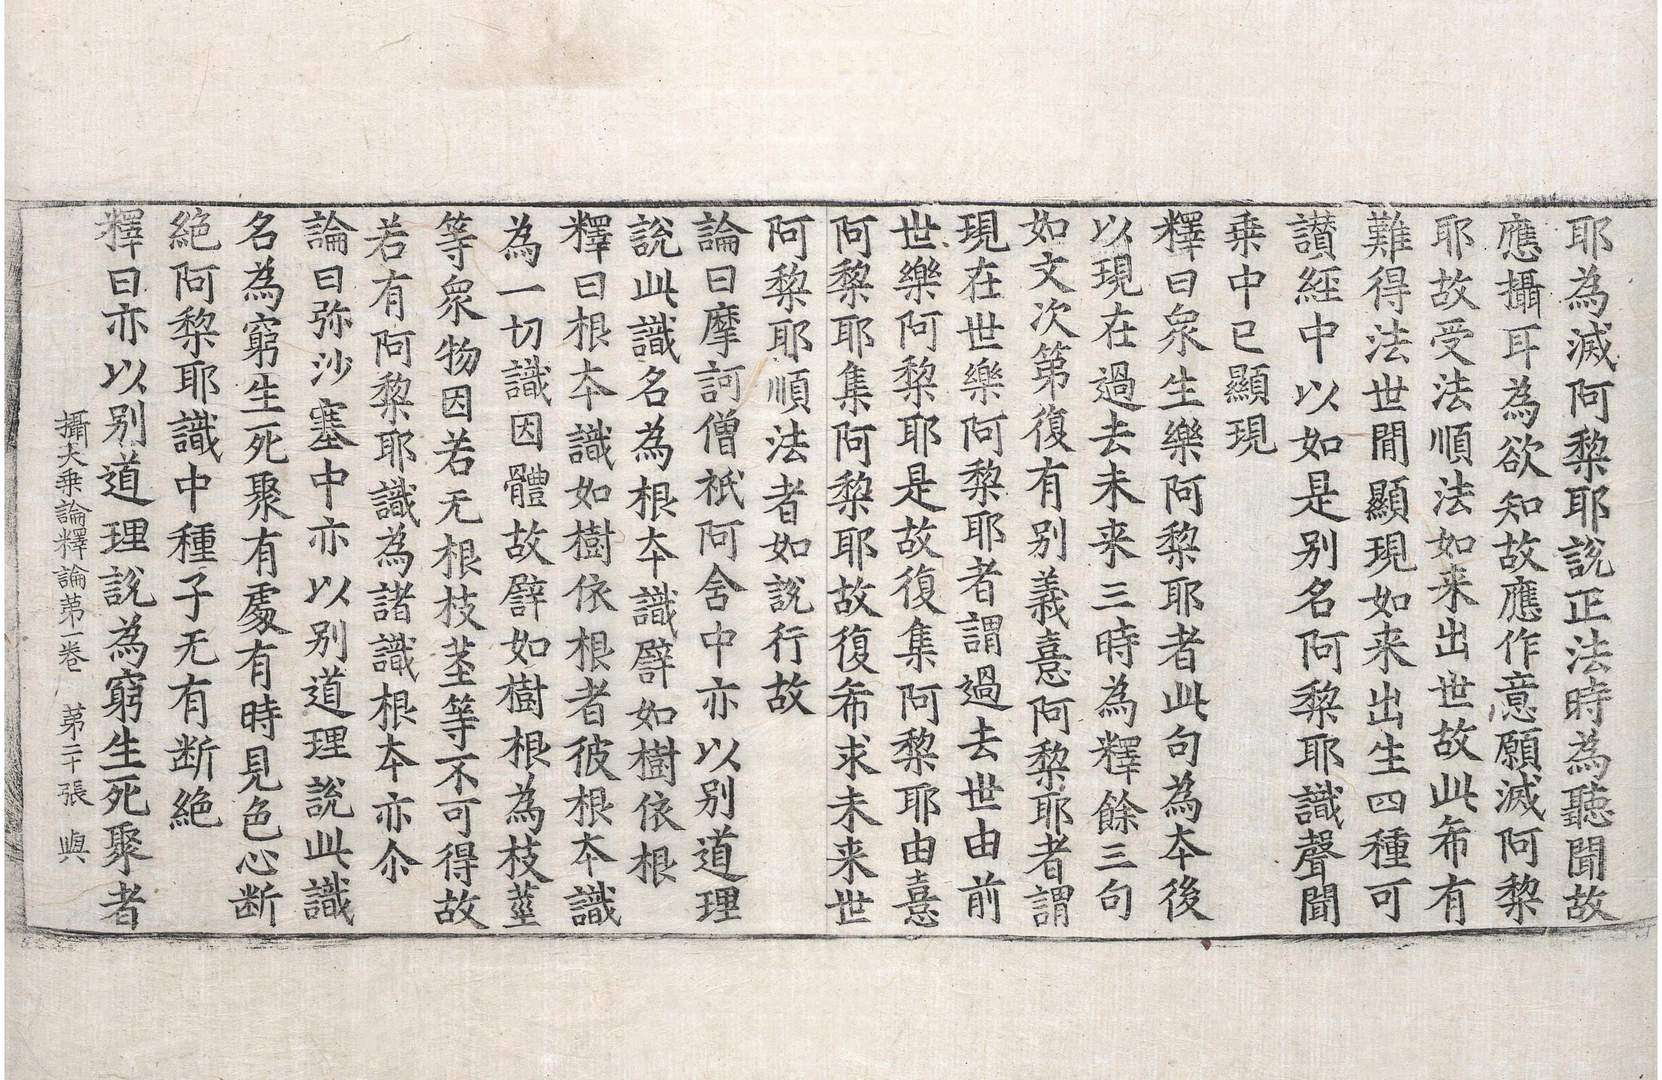 耶為滅阿黎耶說正法時為聽聞故
應攝耳為欲知故應作意願滅阿黎
耶故受法順法如来出世故此希有
難得法世間顯現如来出生四種可
讃經中以如是别名阿黎耶識聲聞
乗中已顯現
釋曰衆生樂阿黎耶者此句為夲後
以現在過去未来三時為釋餘三句
如文次第復有别義憙阿黎耶者謂
現在世樂阿黎耶者謂過去世由前
世樂阿黎耶是故復集阿黎耶由憙
阿黎耶集阿黎耶故復希求未来世
阿黎耶順法者如說行故
論曰摩訶僧祇阿含中亦以别道理
說此識名為根夲識譬如樹依根
釋曰根夲識如樹依根者彼根夲識
為一切識因體故譬如樹根為枝莖
等衆物因若无根枝莖等不可得故
若有阿黎耶識為諸識根夲亦尒
論曰弥沙塞中亦以别道理說此識
名為窮生死聚有處有時見色心断
絶阿黎耶識中種子无有断絶
釋曰亦以别道理說為窮生死聚者
攝大乗論釋論第一卷　第二十張　與